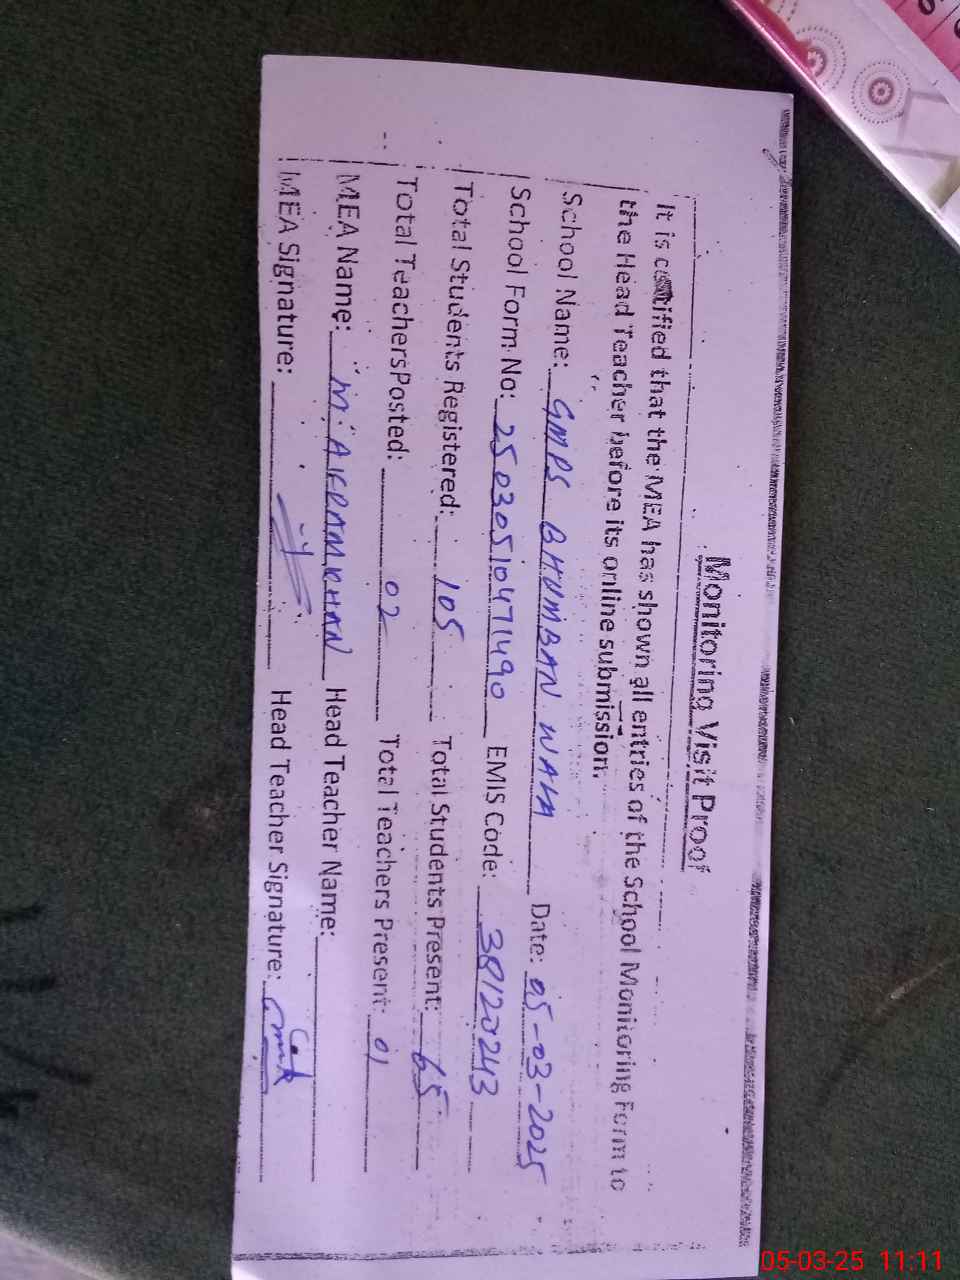 Monitoring Visit Proof
It is certified that the MEA has shown all entries of the School Monitoring Form to
the Head Teacher before its online submission.
School Name: GMPS BHUMBAN WALA Date: 05-03-2025
School Form No: 25030510471490 EMIS Code: 38120243
Total Students Registered: 105 Total Students Present: 65
Total TeachersPosted: 02 Total Teachers Present: 01
MEA Name: M. AKRAM KHAN Head Teacher Name:
MEA Signature: Head Teacher Signature:
05-03-25 11:11